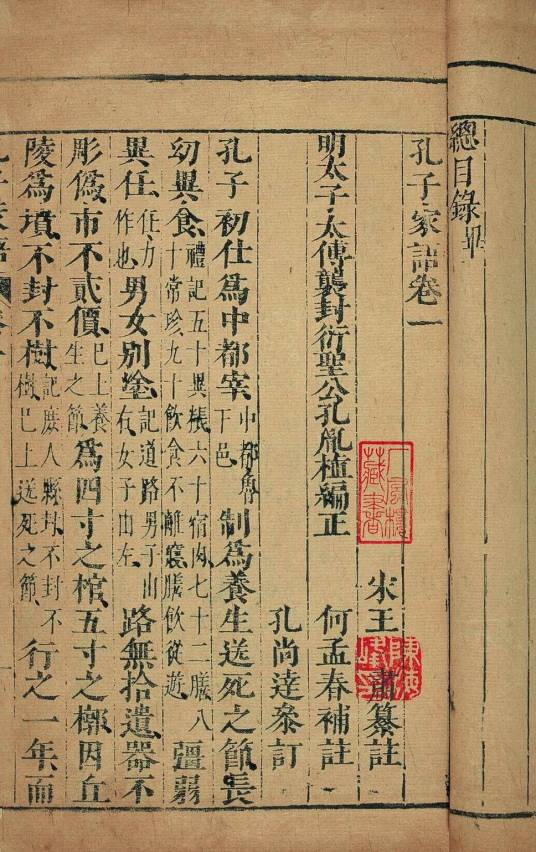 總目錄畢
孔子家語卷一
宋王肅纂註
明太子太傅襲封衍聖公孔胤植編正
何孟春補註
孔尚達參訂
孔子初仕爲中都宰中都魯下邑制爲養生送死之節長
幼異食禮記五十異粻六十宿肉七十二膳八十常珍九十飲食不離寢膳飲從遊彊弱
異任任力作也男女別塗記道路男子由右女子由左路無拾遺器不
彫僞市不貳價已上養生之節爲四寸之棺五寸之槨因丘
陵爲墳不封不樹記庶人縣封不封不樹已上送死之節行之一年而